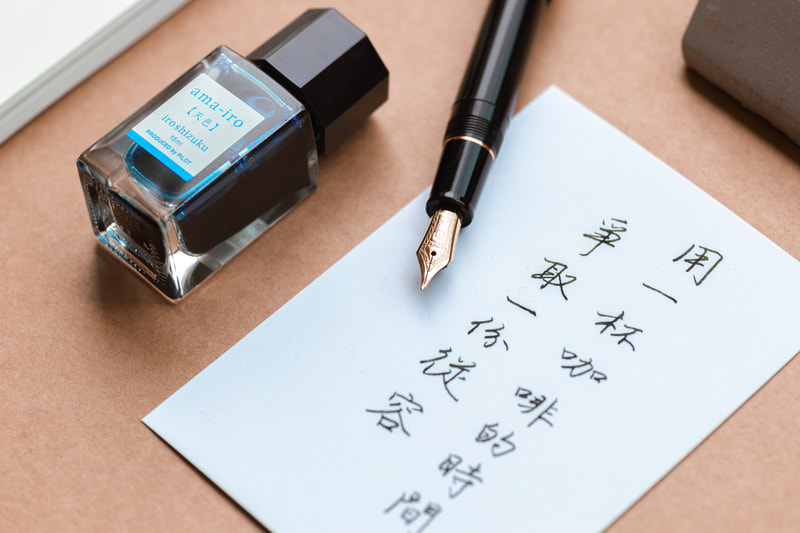 ama-iro
【天色】
iroshizuku
15ml
PRODUCED by PILOT
用一杯咖啡的時間
爭取一份從容